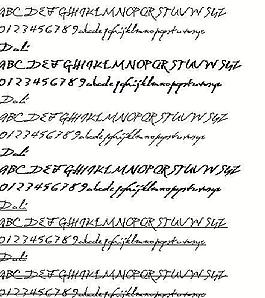 ABCDEFGHIJKLMNOPQRSTUVWXYZ
0123456789abcdefghijklmnopqrstuvwxyz
Dali
ABCDEFGHIJKLMNOPQRSTUVWXYZ
0123456789abcdefghijklmnopqrstuvwxyz
Dali
ABCDEFGHIJKLMNOPQRSTUVWXYZ
0123456789abcdefghijklmnopqrstuvwxyz
Dali
ABCDEFGHIJKLMNOPQRSTUVWXYZ
0123456789abcdefghijklmnopqrstuvwxyz
Dali
ABCDEFGHIJKLMNOPQRSTUVWXYZ
0123456789abcdefghijklmnopqrstuvwxyz
Dali
ABCDEFGHIJKLMNOPQRSTUVWXYZ
0123456789abcdefghijklmnopqrstuvwxyz